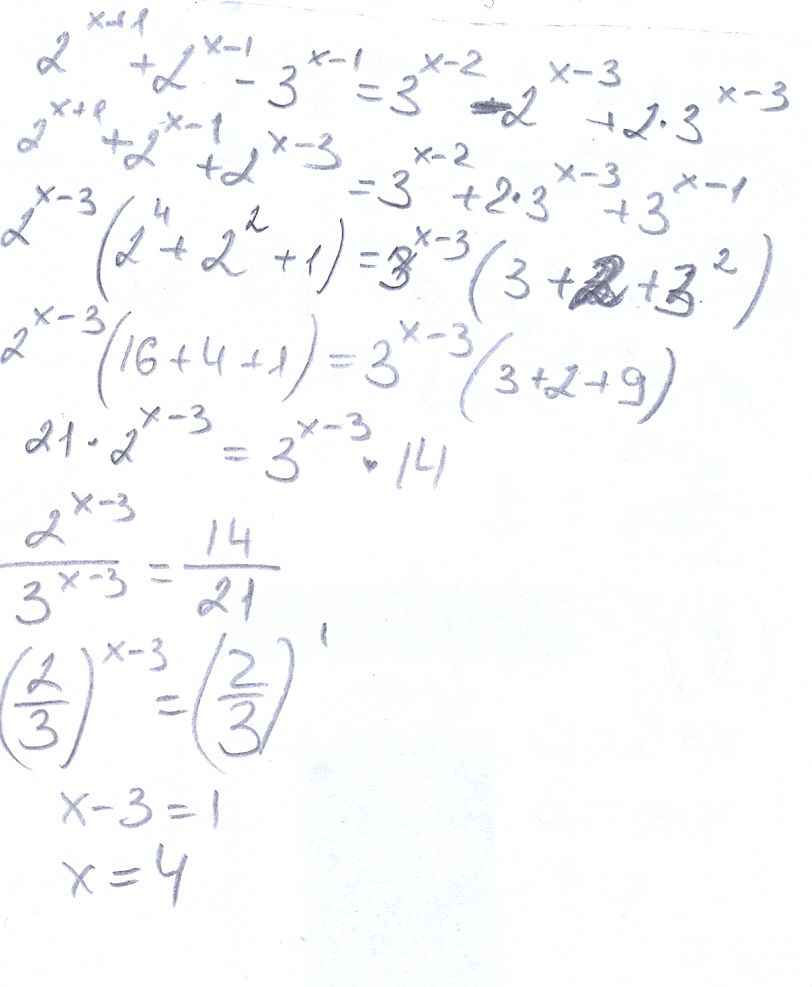 2^{x+1} + 2^{x-1} - 3^{x-1} = 3^{x-2} - 2^{x-3} + 2·3^{x-3}
2^{x+1} + 2^{x-1} + 2^{x-3} = 3^{x-2} + 2·3^{x-3} + 3^{x-1}
2^{x-3} (2^4 + 2^2 + 1) = 3^{x-3} (3 + 2 + 3^2)
2^{x-3} (16 + 4 + 1) = 3^{x-3} (3 + 2 + 9)
21 · 2^{x-3} = 3^{x-3} · 14
\frac{2^{x-3}}{3^{x-3}} = \frac{14}{21}
(\frac{2}{3})^{x-3} = (\frac{2}{3})^1
x - 3 = 1
x = 4